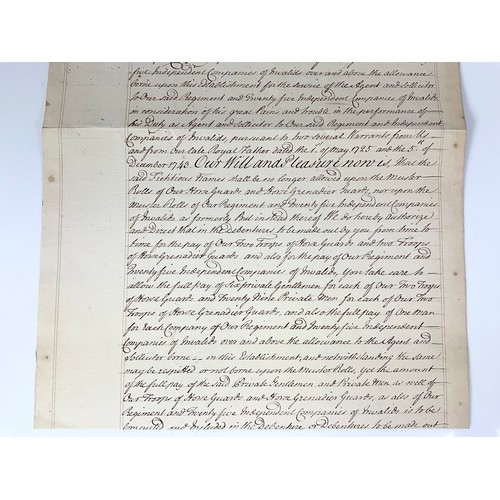 five Independent Companies of Invalids over and above the allowance
borne upon this Establishment for the Service of the Agent and Sollicitor
to Our said Regiment and Twenty five Independent Companies of Invalids,
in consideration of his great Pains and trouble in the performance of
his Duty as Agent and Sollicitor to Our said Regiment and Independent
Companies of Invalids, pursuant to two Several Warrants from Us
and from Our late Royal Father dated the 1st. of May 1725 and the 5th. of
December 1743. Our Will and Pleasure now is, that the
said Fictitious Names shall be no longer allowed upon the Muster
Rolls of Our Horse Guards and Horse Grenadier Guards, nor upon the
Muster Rolls of Our Regiment and Twenty five Independent Companies
of Invalids as formerly but instead thereof We do hereby authorize
and Direct that in the Debentures to be made out by you from time to
time for the pay of Our Two Troops of Horse Guards and two Troops
of Horse Grenadier Guards and also for the pay of Our Regiment and
Twenty five Independent Companies of Invalids, You take care to
allow the full pay of Six private Gentlemen for each of Our Two Troops
of Horse Guards and Twenty Private Men for each of Our Two
Troops of Horse Grenadier Guards, and also the full pay of One Man
for each Company of Our Regiment and Twenty five Independent
Companies of Invalids over and above the allowance to the Agent and
Sollicitor borne on this Establishment, and notwithstanding the same
may be respited or not borne upon the Muster Rolls, Yet the amount
of the full pay of the said Private Gentlemen and Private Men as well of
Our Troops of Horse Guards and Horse Grenadier Guards, as also of Our
Regiment and Twenty five Independent Companies of Invalids is to be
computed and Included in the Debenture or Debentures to be made out